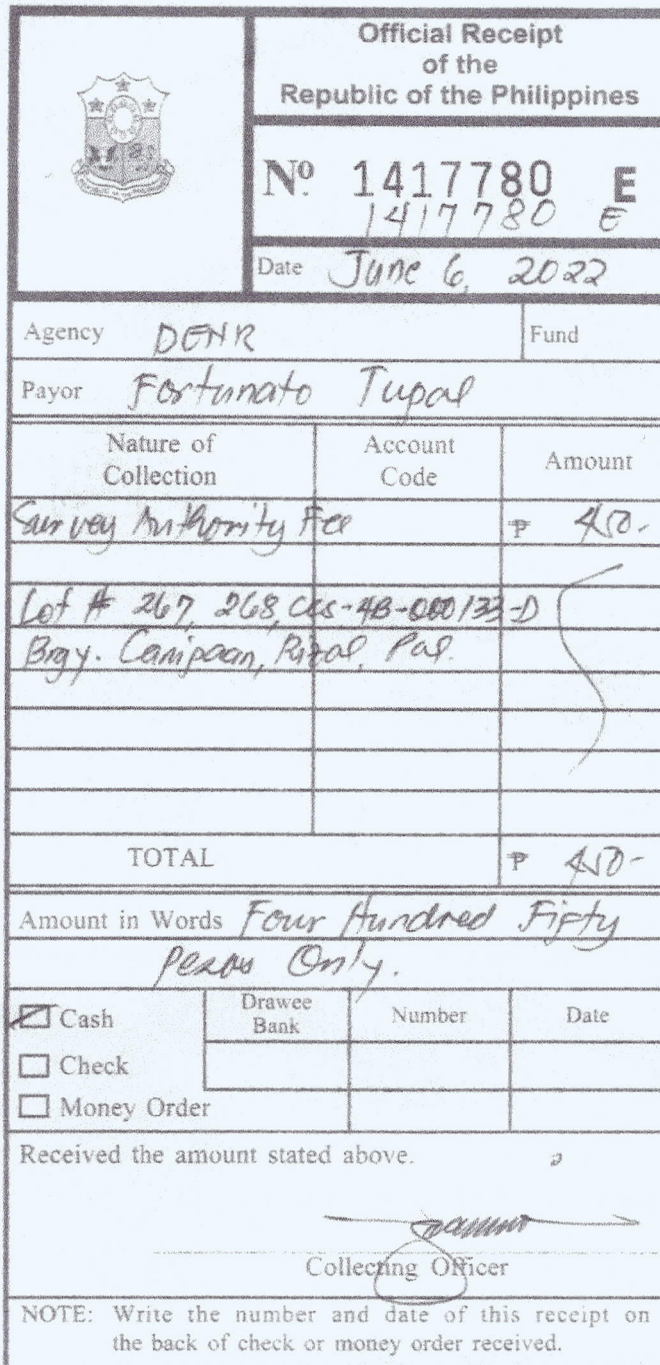 Official Receipt
of the
Republic of the Philippines
Nº 1417780 E
1417780 E
Date June 6, 2022
Agency DENR
Fund
Payor Fortunato Tupal
Nature of Collection
Account Code
Amount
Survey Authority Fee ₱ 450-
Lot # 267, 268, Ccs-4B-000133-D
Brgy. Canipaan, Rizal, Pal.
TOTAL ₱ 450-
Amount in Words Four Hundred Fifty
Pesos Only.
Cash
Drawee Bank
Number
Date
Check
Money Order
Received the amount stated above.
Collecting Officer
NOTE: Write the number and date of this receipt on
the back of check or money order received.